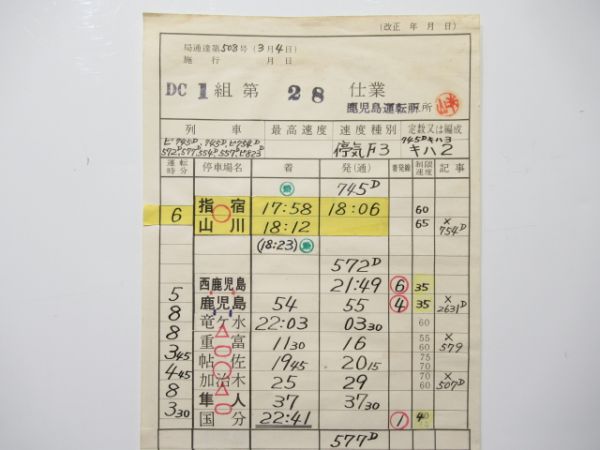 (改正 年 月 日)
局通達第503号(3月4日)
施行 月 日
DC 1組第 28 仕業
鹿児島運転所
列車 最高速度 速度種別 定数又は編成
745D, 754D
572D, 577D, 554D, 557D 停気F3 745Dキハ3
キハ2
運転時分 停車場名 着 発(通) 着発線 制限速度 記事
745D
6 指宿 17:58 18:06 60
山川 18:12 65 ×754D
(18:23)
572D
西鹿児島 21:49 6 35
5 鹿児島 54 55 4 35 ×2631D
8 竜ケ水 22:03 03 30 60
8 重富 11 30 16 55 60 ×579
3 45 帖佐 19 45 20 15 75 70
4 45 加治木 25 29 70 60 ×507D
8 隼人 37 37 30
3 30 国分 22:41 1 40
577D